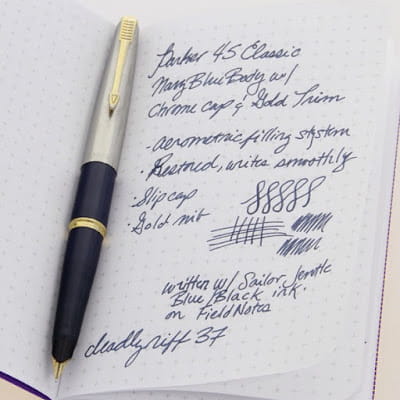 Parker 45 Classic
Navy Blue Body w/
Chrome cap & Gold Trim
- aerometric filling system
- Restored, writes smoothly
- Slip cap
Gold nib
written w/ Sailor Jentle
Blue/Black ink
on Field Notes
deadlyriff 37